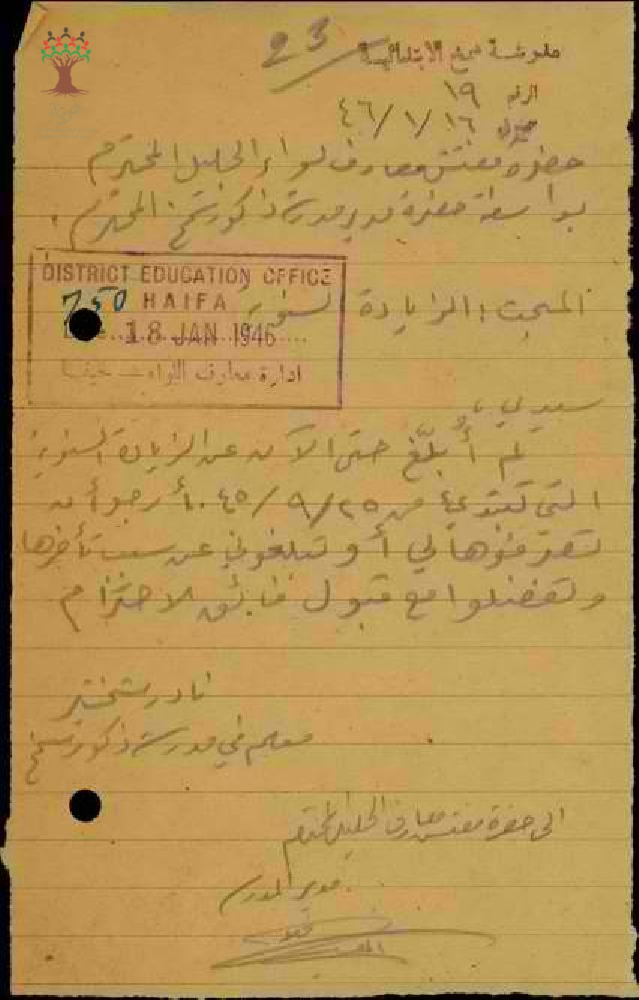 23
مدرسة سمخ الابتدائية
الرقم ١٩
١٦/١/٤٦
حضرة مفتش معارف لواء الجليل المحترم
بواسطة حضرة مدير مدرسة ذكور سمخ المحترم.
DISTRICT EDUCATION OFFICE
750 HAIFA
18 JAN 1946
ادارة معارف اللواء حيفا
المبحث: الزيادة السنوية
سيدي،
لم أبلّغ حتى الآن عن الزيادة السنوية
التي تبتدئ من ٢٥/٩/٤٥. أرجو أن
تصرفوها لي أو تبلغوني عن سبب تأخرها
وتفضلوا مع قبول فائق الاحترام
نادر
معلم في مدرسة ذكور سمخ
الى حضرة مفتش معارف الجليل المحترم
مدير المدرسة